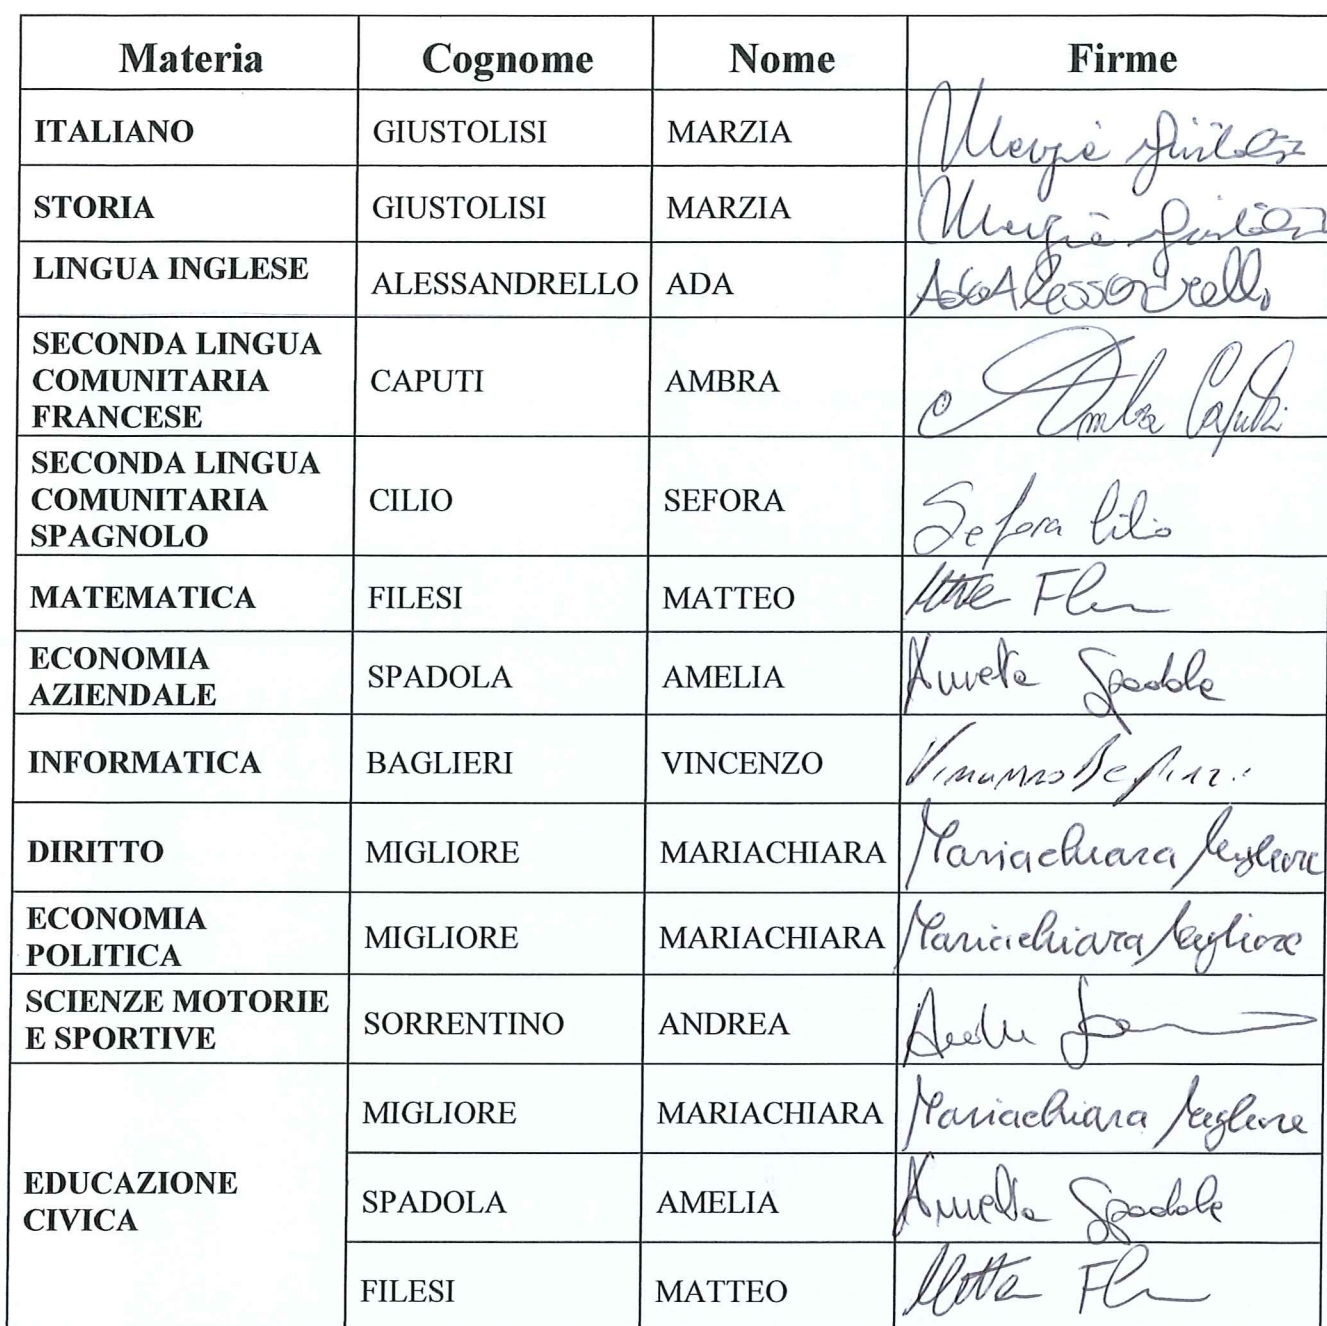 Materia Cognome Nome Firme
ITALIANO GIUSTOLISI MARZIA Marzia Giustolisi
STORIA GIUSTOLISI MARZIA Marzia Giustolisi
LINGUA INGLESE ALESSANDRELLO ADA Ada Alessandrello
SECONDA LINGUA
COMUNITARIA CAPUTI AMBRA Ambra Caputi
FRANCESE
SECONDA LINGUA
COMUNITARIA CILIO SEFORA Sefora Cilio
SPAGNOLO
MATEMATICA FILESI MATTEO
ECONOMIA
AZIENDALE SPADOLA AMELIA Amelia Spadola
INFORMATICA BAGLIERI VINCENZO Vincenzo Baglieri
DIRITTO MIGLIORE MARIACHIARA Mariachiara Migliore
ECONOMIA
POLITICA MIGLIORE MARIACHIARA Mariachiara Migliore
SCIENZE MOTORIE
E SPORTIVE SORRENTINO ANDREA
MIGLIORE MARIACHIARA Mariachiara Migliore
EDUCAZIONE
CIVICA SPADOLA AMELIA Amelia Spadola
FILESI MATTEO